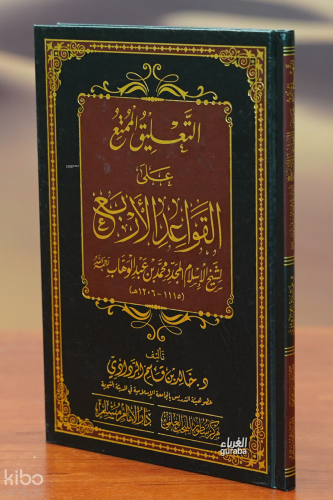 التعليق الممتع
على
القواعد الأربع
لشيخ الإسلام المجدد محمد بن عبد الوهاب رحمه الله
(١١١٥-١٢٠٦هـ)
تأليف
د. خالد بن قاسم الردادي
عضو هيئة التدريس بالجامعة الإسلامية في المدينة النبوية
دار الإمام مسلم
الغرباء
guraba
kibo